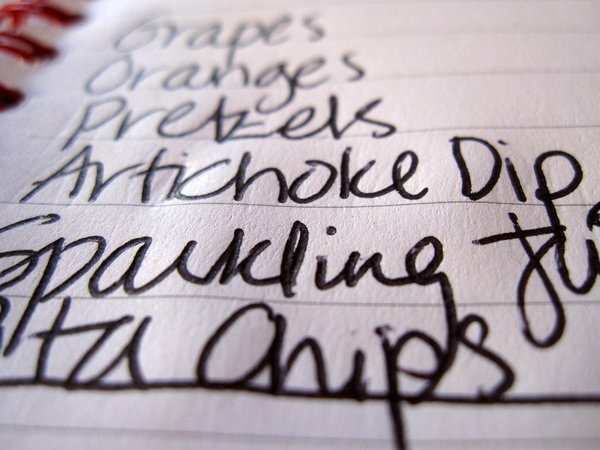 Grapes
Oranges
Pretzels
Artichoke Dip
Sparkling Jui
ita Chips